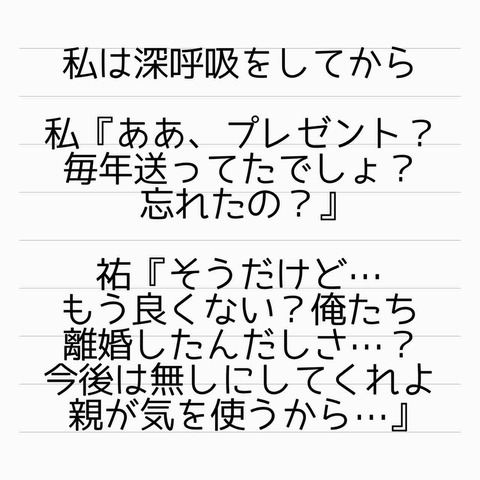 私は深呼吸をしてから
私『ああ、プレゼント？
毎年送ってたでしょ？
忘れたの？』
祐『そうだけど…
もう良くない？俺たち
離婚したんだしさ…？
今後は無しにしてくれよ
親が気を使うから…』